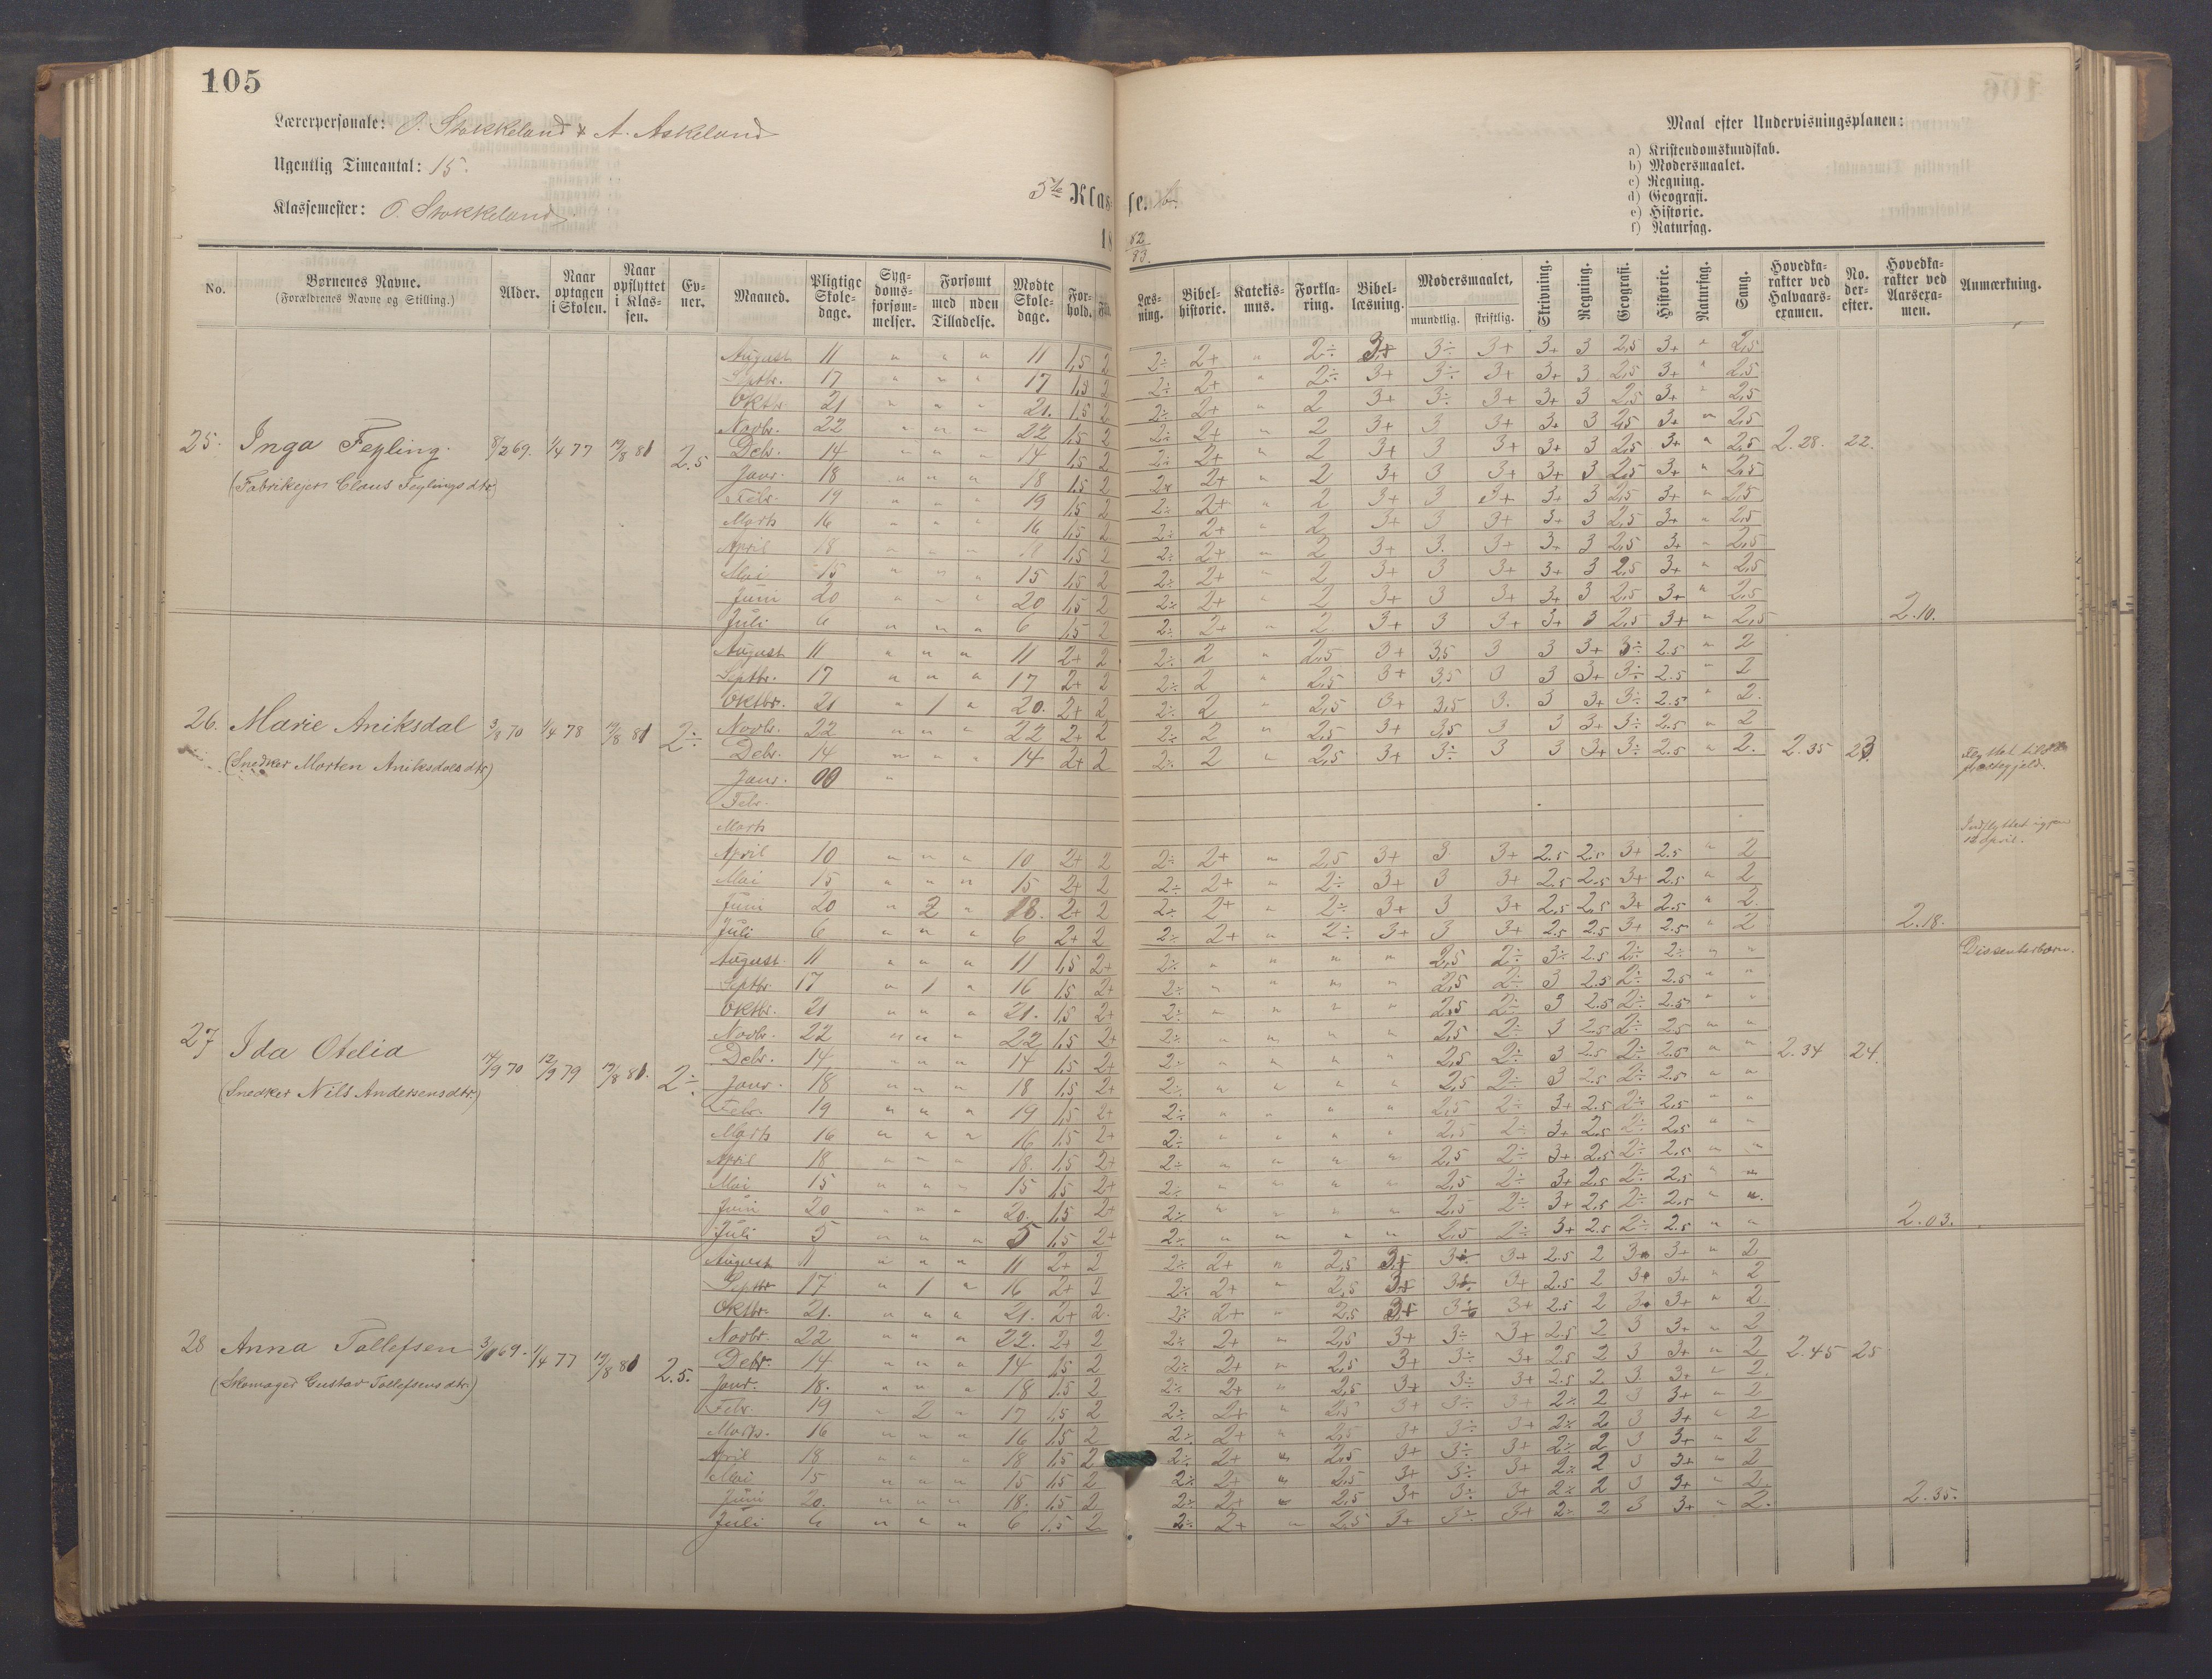 105
Lærerpersonale: O. Stokkeland & A. Askeland
Ugentlig Timeantal: 15.
Klassemester: O. Stokkeland
5te Klasse. b.
18 82/83.
Maal efter Undervisningsplanen:
a) Kristendomskundskab.
b) Modersmaalet.
c) Regning.
d) Geografi.
e) Historie.
f) Naturfag.
No. Børnenes Navne. (Forældrenes Navne og Stilling.) Alder. Naar optagen i Skolen. Naar opflyttet i Klassen. Evner. Maaned. Pligtige Skoledage. Sygdomsforsømmelser. Forsømt med uden Tilladelse. Mødte Skoledage. Forhold. Flid. Læsning. Bibelhistorie. Katekismus. Forklaring. Bibellæsning. Modersmaalet, mundtlig. skriftlig. Skrivning. Regning. Geografi. Historie. Naturfag. Sang. Hovedkarakter ved Halvaarsexamen. No. derefter. Hovedkarakter ved Aarsexamen. Anmærkning.
August 11 " " " 11 1,5 2 2÷ 2+ " 2÷ 3+ 3÷ 3+ 3+ 3 2,5 3+ " 2,5
Septbr. 17 " " " 17 1,5 2 2÷ 2+ " 2÷ 3+ 3÷ 3+ 3+ 3 2,5 3+ " 2,5
Oktbr. 21 " " " 21. 1,5 2 2÷ 2+ " 2 3+ 3÷ 3+ 3+ 3 2,5 3+ " 2,5
Novbr. 22 " " " 22 1,5 2 2÷ 2+ " 2 3+ 3 3+ 3+ 3 2,5 3+ " 2,5
25. Inga Feyling. 8/2 69. 1/4 77 19/8 81 2.5 Debr. 14 " " " 14 1,5 2 2÷ 2+ " 2 3+ 3 3+ 3+ 3 2,5 3+ " 2,5 2.28. 22.
(Fabrikejer Claus Feylings dtr.) Janr. 18 " " " 18 1,5 2 2÷ 2+ " 2 3+ 3 3+ 3+ 3 2,5 3+ " 2,5
Febr. 19 " " " 19 1,5 2 2÷ 2+ " 2 3+ 3 3+ 3+ 3 2,5 3+ " 2,5
Marts 16 " " " 16 1,5 2 2÷ 2+ " 2 3+ 3 3+ 3+ 3 2,5 3+ " 2,5
April 18 " " " 18 1,5 2 2÷ 2+ " 2 3+ 3. 3+ 3+ 3 2,5 3+ " 2,5
Mai 15 " " " 15 1,5 2 2÷ 2+ " 2 3+ 3 3+ 3+ 3 2,5 3+ " 2,5
Juni 20 " " " 20 1,5 2 2÷ 2+ " 2 3+ 3 3+ 3+ 3 2,5 3+ " 2,5
Juli 6 " " " 6 1,5 2 2÷ 2+ " 2 3+ 3 3+ 3+ 3 2,5 3+ " 2,5 2.10.
August 11 " " " 11 2+ 2 2÷ 2 " 2,5 3+ 3,5 3 3 3+ 3÷ 2.5 " 2
Septbr. 17 " " " 17 2+ 2 2÷ 2 " 2,5 3+ 3,5 3 3 3+ 3÷ 2.5 " 2
Oktbr. 21 " 1 " 20. 2+ 2 2÷ 2 " 2,5 3+ 3,5 3. 3 3+ 3÷ 2.5 " 2.
26. Marie Aniksdal 3/8 70 1/4 78 19/8 81 2÷ Novbr. 22 " " " 22 2+ 2 2÷ 2 " 2,5 3+ 3,5 3 3 3+ 3÷ 2.5 " 2
(Snedker Morten Aniksdals dtr.) Debr. 14 " " " 14 2+ 2 2÷ 2 " 2,5 3+ 3÷ 3 3 3+ 3÷ 2.5 " 2. 2.35 23 Flyttet til
Janr. 00 " præstegjeld.
Febr.
Marts Indflyttet igjen
April 10 " " " 10 2+ 2 2÷ 2+ " 2,5 3+ 3 3+ 2.5 2.5 3+ 2.5 " 2 12 April.
Mai 15 " " " 15 2+ 2 2÷ 2+ " 2÷ 3+ 3 3+ 2.5 2.5 3+ 2.5 " 2
Juni 20 " 2 " 18. 2+ 2 2÷ 2+ " 2÷ 3+ 3 3+ 2,5 2,5 3+ 2.5 " 2.
Juli 6 " " " 6 2+ 2 2÷ 2+ " 2÷ 3+ 3 3+ 2.5 2.5 3+ 2.5 " 2 2.18.
August 11 " " " 11 1,5 2+ 2÷ " " " " 2,5 2÷ 3÷ 2.5 2÷ 2÷ " " Dissenterbarn.
Septbr. 17 " 1 " 16 1,5 2+ 2÷ " " " " 2,5 2÷ 3 2.5 2÷ 2.5 " "
Oktbr. 21 " " " 21. 1,5 2+ 2÷ " " " " 2,5 2÷ 3 2.5 2÷ 2.5 " "
Novbr. 22 " " " 22 1,5 2+ 2÷ " " " " 2,5 2÷ 3 2.5 2÷ 2.5 " "
27 Ida Otelia 14/9 70 12/9 79 19/8 81. 2÷ Debr. 14 " " " 14 1,5 2+ 2÷ " " " " 2,5 2÷ 3 2.5 2÷ 2.5 " " 2.34 24.
(Snedker Nils Andersens dtr.) Janr. 18 " " " 18 1,5 2+ 2÷ " " " " 2,5 2÷ 3 2.5 2÷ 2.5 " "
Febr. 19 " " " 19 1,5 2+ 2÷ " " " " 2,5 2÷ 3+ 2.5 2÷ 2,5 " "
Marts 16 " " " 16 1,5 2+ 2÷ " " " " 2,5 2÷ 3+ 2,5 2÷ 2,5 " "
April 18 " " " 18. 1,5 2+ 2÷ " " " " 2,5 2÷ 3+ 2,5 2÷ 2.5 " "
Mai 15 " " " 15 1,5 2+ 2÷ " " " " 2,5 2÷ 3+ 2,5 2÷ 2,5 " "
Juni 20 " " " 20. 1,5 2+ 2÷ " " " " 2,5 2÷ 3+ 2,5 2÷ 2,5 " "
Juli 5 " " " 5 1,5 2+ 2÷ " " " " 2,5 2÷ 3+ 2.5 2÷ 2.5 " " 2.03.
August 11 " " " 11 2+ 2 2÷ 2+ " 2,5 3+ 3÷ 3+ 2.5 2 3 3+ " 2
Septbr 17 " 1 " 16 2+ 2 2÷ 2+ " 2,5 3+ 3÷ 3+ 2.5 2 3 3+ " 2
Oktbr. 21. " " " 21. 2+ 2. 2÷ 2+ " 2.5 3+ 3÷ 3+ 2.5 2 3 3+ " 2
Novbr. 22 " " " 22. 2+ 2 2÷ 2+ " 2,5 3+ 3÷ 3+ 2.5 2 3 3+ " 2
28 Anna Tollefsen 69. 1/4 77 19/8 81 2.5. Debr. 14 " " " 14 1,5 2 2÷ 2+ " 2,5 3+ 3÷ 3+ 2.5 2 3 3+ " 2 2.45 25
(Skomager Gustav Tollefsens dtr.) Janr. 18. " " " 18 1,5 2 2÷ 2+ " 2,5 3+ 3÷ 3+ 2.5 2 3 3+ " 2.
Febr. 19 " 2 " 17 1,5 2 2÷ 2+ " 2,5 3+ 3÷ 3+ 2÷ 2 3 3+ " 2
Marts. 16 " " " 16 1,5 2 2÷ 2+ " 2,5 3+ 3÷ 3+ 2÷ 2 3 3+ " 2
April 18 " " " 18 1,5 2 2÷ 2+ " 2,5 3+ 3÷ 3+ 2÷ 2 3 3+ " 2
Mai 15 " " " 15 1,5 2 2÷ 2+ " 2,5 3+ 3÷ 3+ 2÷ 2 3 3+ " 2
Juni 20. " " " 18. 1,5 2 2÷ 2+ " 2,5 3+ 3÷ 3+ 2÷ 2 3 3+ " 2
Juli 6 " " " 6 1,5 2 2÷ 2+ " 2,5 3+ 3÷ 3+ 2÷ 2 3 3+ " 2. 2.35.